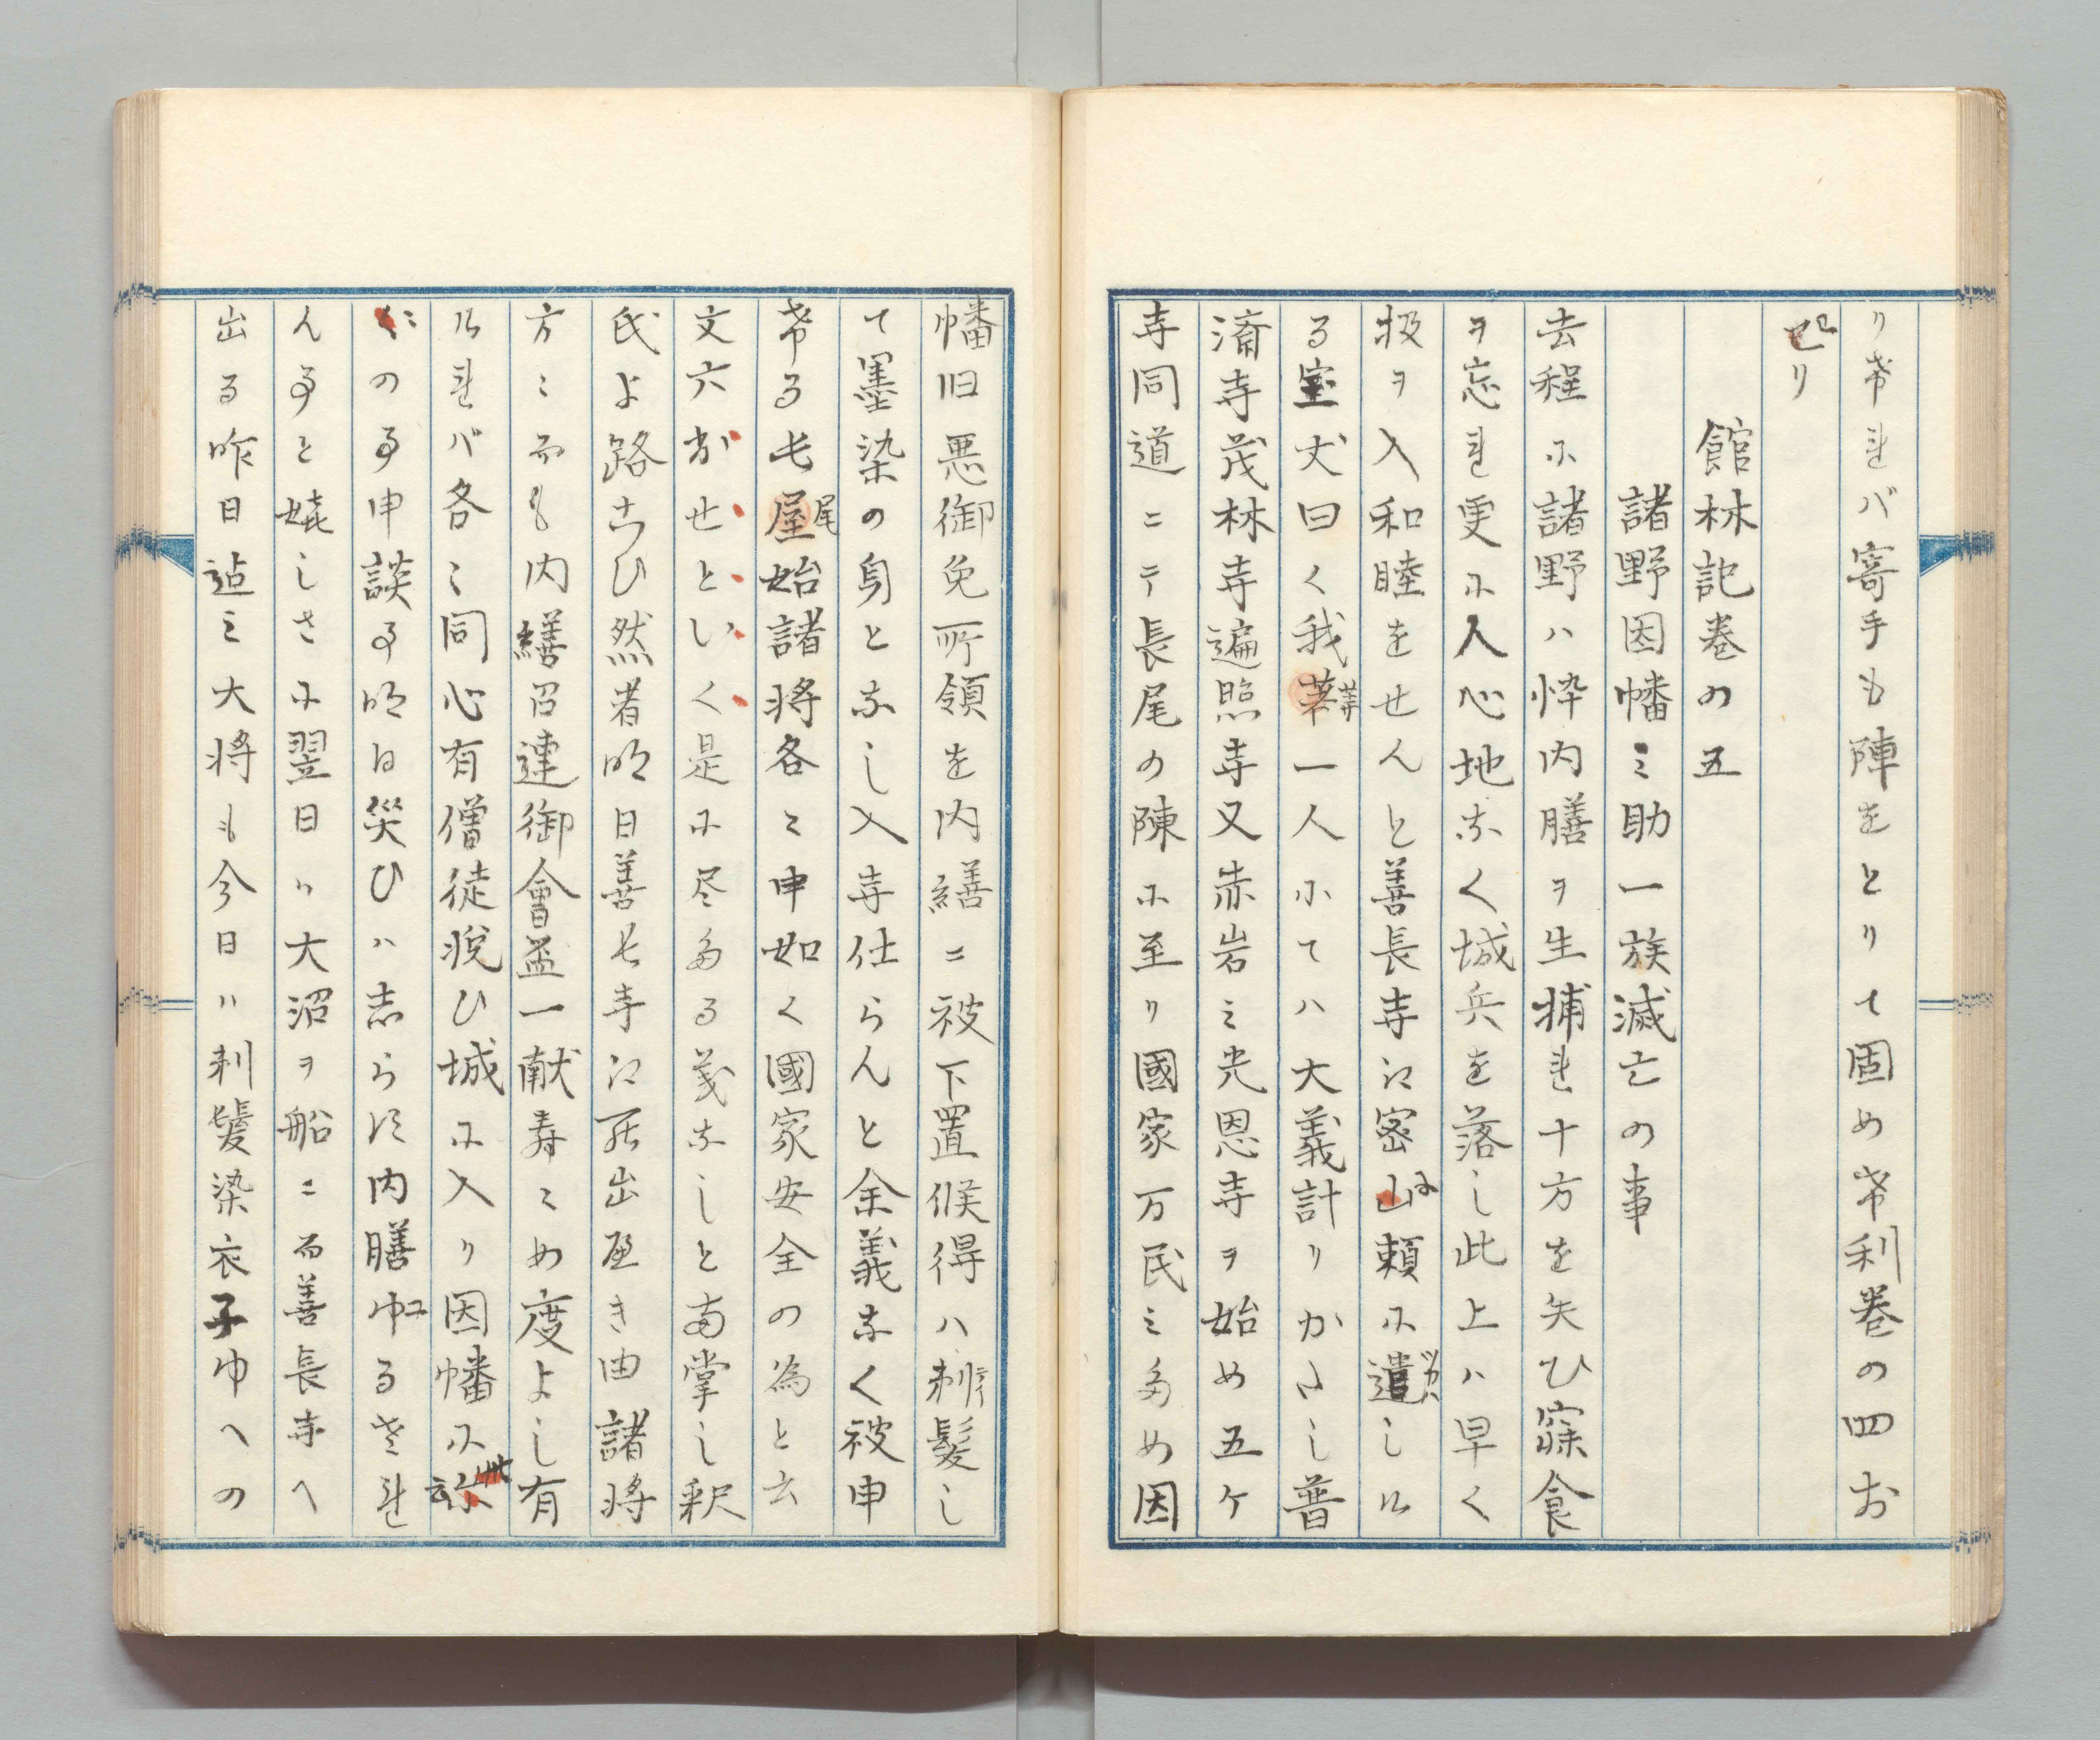 り希れバ寄手も陣をとりて固め希利巻の四お
せり
館林記巻の五
諸野因幡之助一族滅亡の事
去程に諸野ハ忰内膳ヲ生捕れ十方を矢ひ寐食
ヲ忘れ更に人心地なく城兵を落し此上ハ早く
扱ヲ入和睦をせんと善長寺江密に頼に遣しル
る室丈曰く我等一人にてハ大義計りかたし普
済寺茂林寺遍照寺又赤岩之光恩寺ヲ始め五ケ
寺同道ニテ長尾の陳に至り國家万民之多め因
幡旧悪御免所領を内繕ニ被下置候得ハ剃髪し
て墨染の身となし入寺仕らんと余義なく被申
希る长尾始諸将各々申如く國家安全の為と云
文六かせといく是に尽多る義なしと両掌し釈
氏よ路こひ然者明日善长寺江罷出べき由諸将
方ニ而も内繕召連御會盃一献寿ゝめ度よし有
ルれバ各ゝ同心有僧徒悦ひ城に入り因幡に
の事申談事明日災ひハ志らに内膳ゆるされ
ん事と嬉しさに翌日ハ大沼ヲ船ニ而善長寺へ
出る昨日迠之大将も今日ハ剃髪染衣子ゆへの